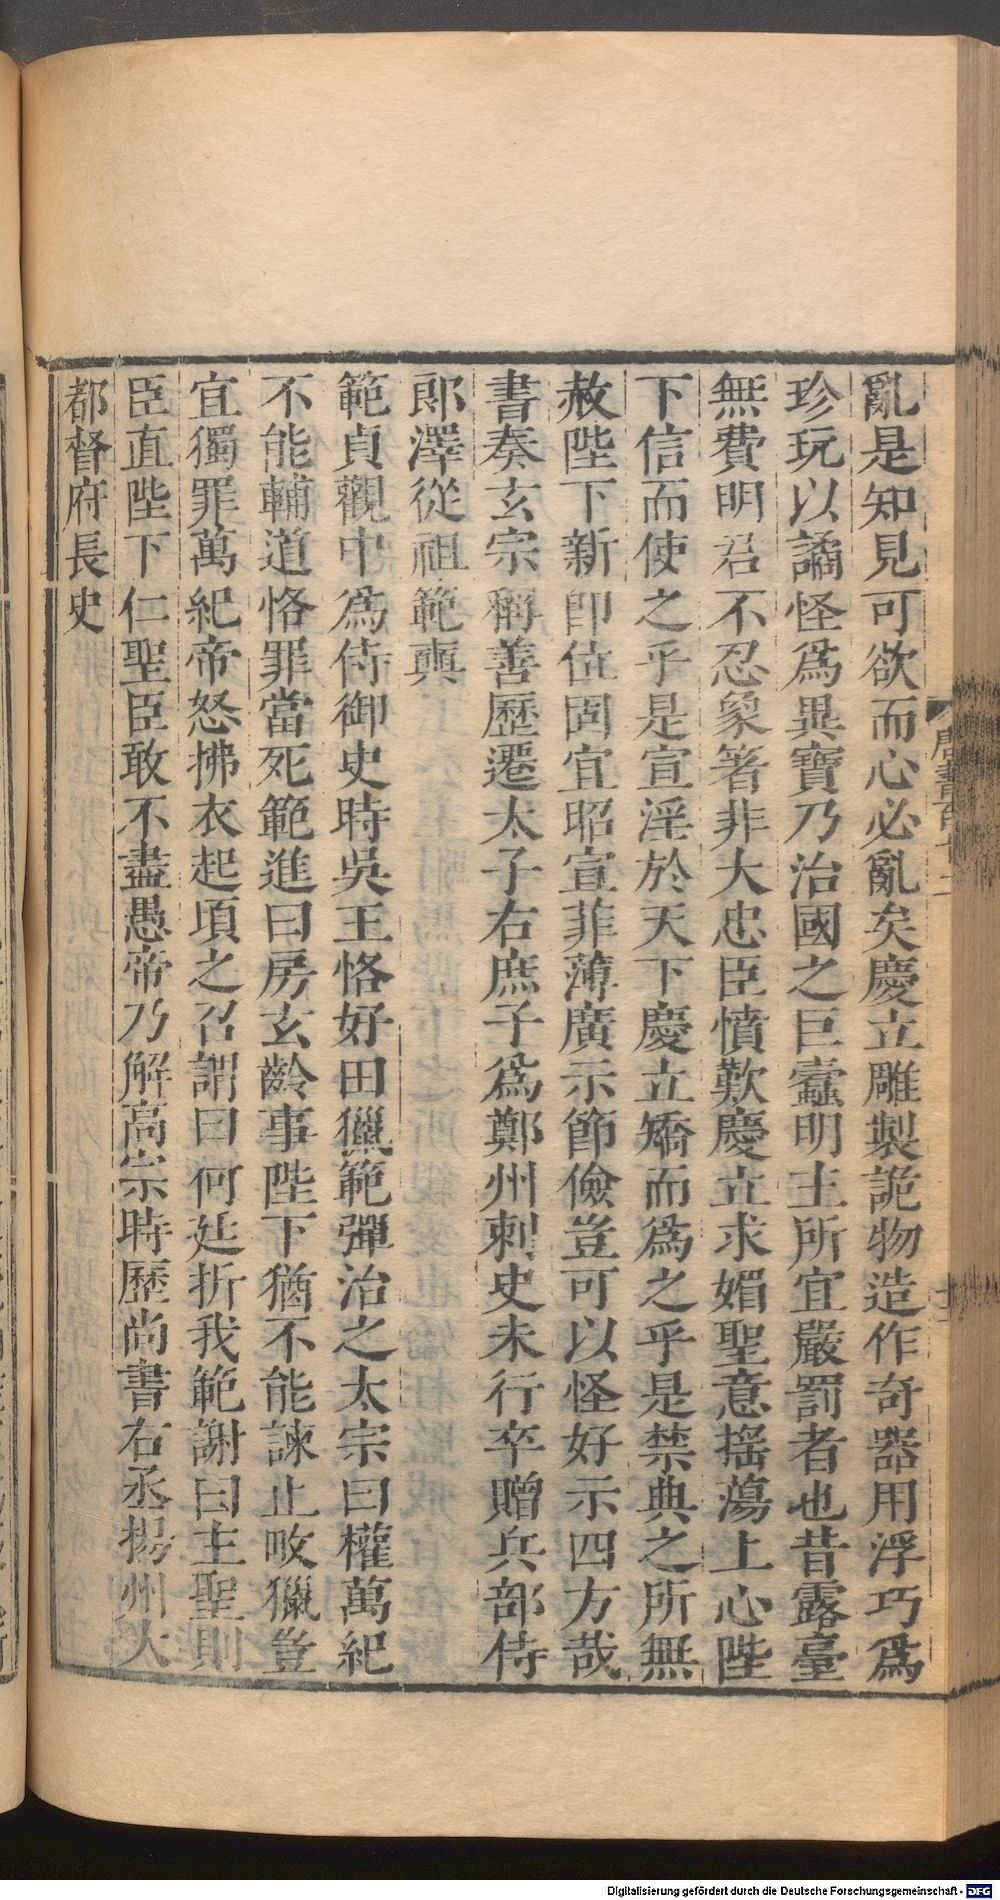 亂是知見可欲而心必亂矣慶立雕製詭物造作奇器用浮巧爲
珍玩以譎怪爲異寶乃治國之巨蠹明主所宜嚴罰者也昔露臺
無費明君不忍象箸非大忠臣憤歎慶立求媚聖意揺蕩上心陛
下信而使之乎是宣淫於天下慶立矯而爲之乎是禁典之所無
赦陛下新即位固宜昭宣菲薄廣示節儉豈可以怪好示四方哉
書奏玄宗稱善歷遷太子右庶子爲鄭州刺史未行卒贈兵部侍
郎澤從祖範奭
範貞觀中爲侍御史時吳王恪好田獵範彈治之太宗曰權萬紀
不能輔道恪罪當死範進曰房玄齡事陛下猶不能諫止畋獵豈
宜獨罪萬紀帝怒拂衣起頃之召謂曰何廷折我範謝曰主聖則
臣直陛下仁聖臣敢不盡愚帝乃解高宗時歷尚書右丞揚州大
都督府長史
唐書百十二
Digitalisierung gefördert durch die Deutsche Forschungsgemeinschaft - DFG